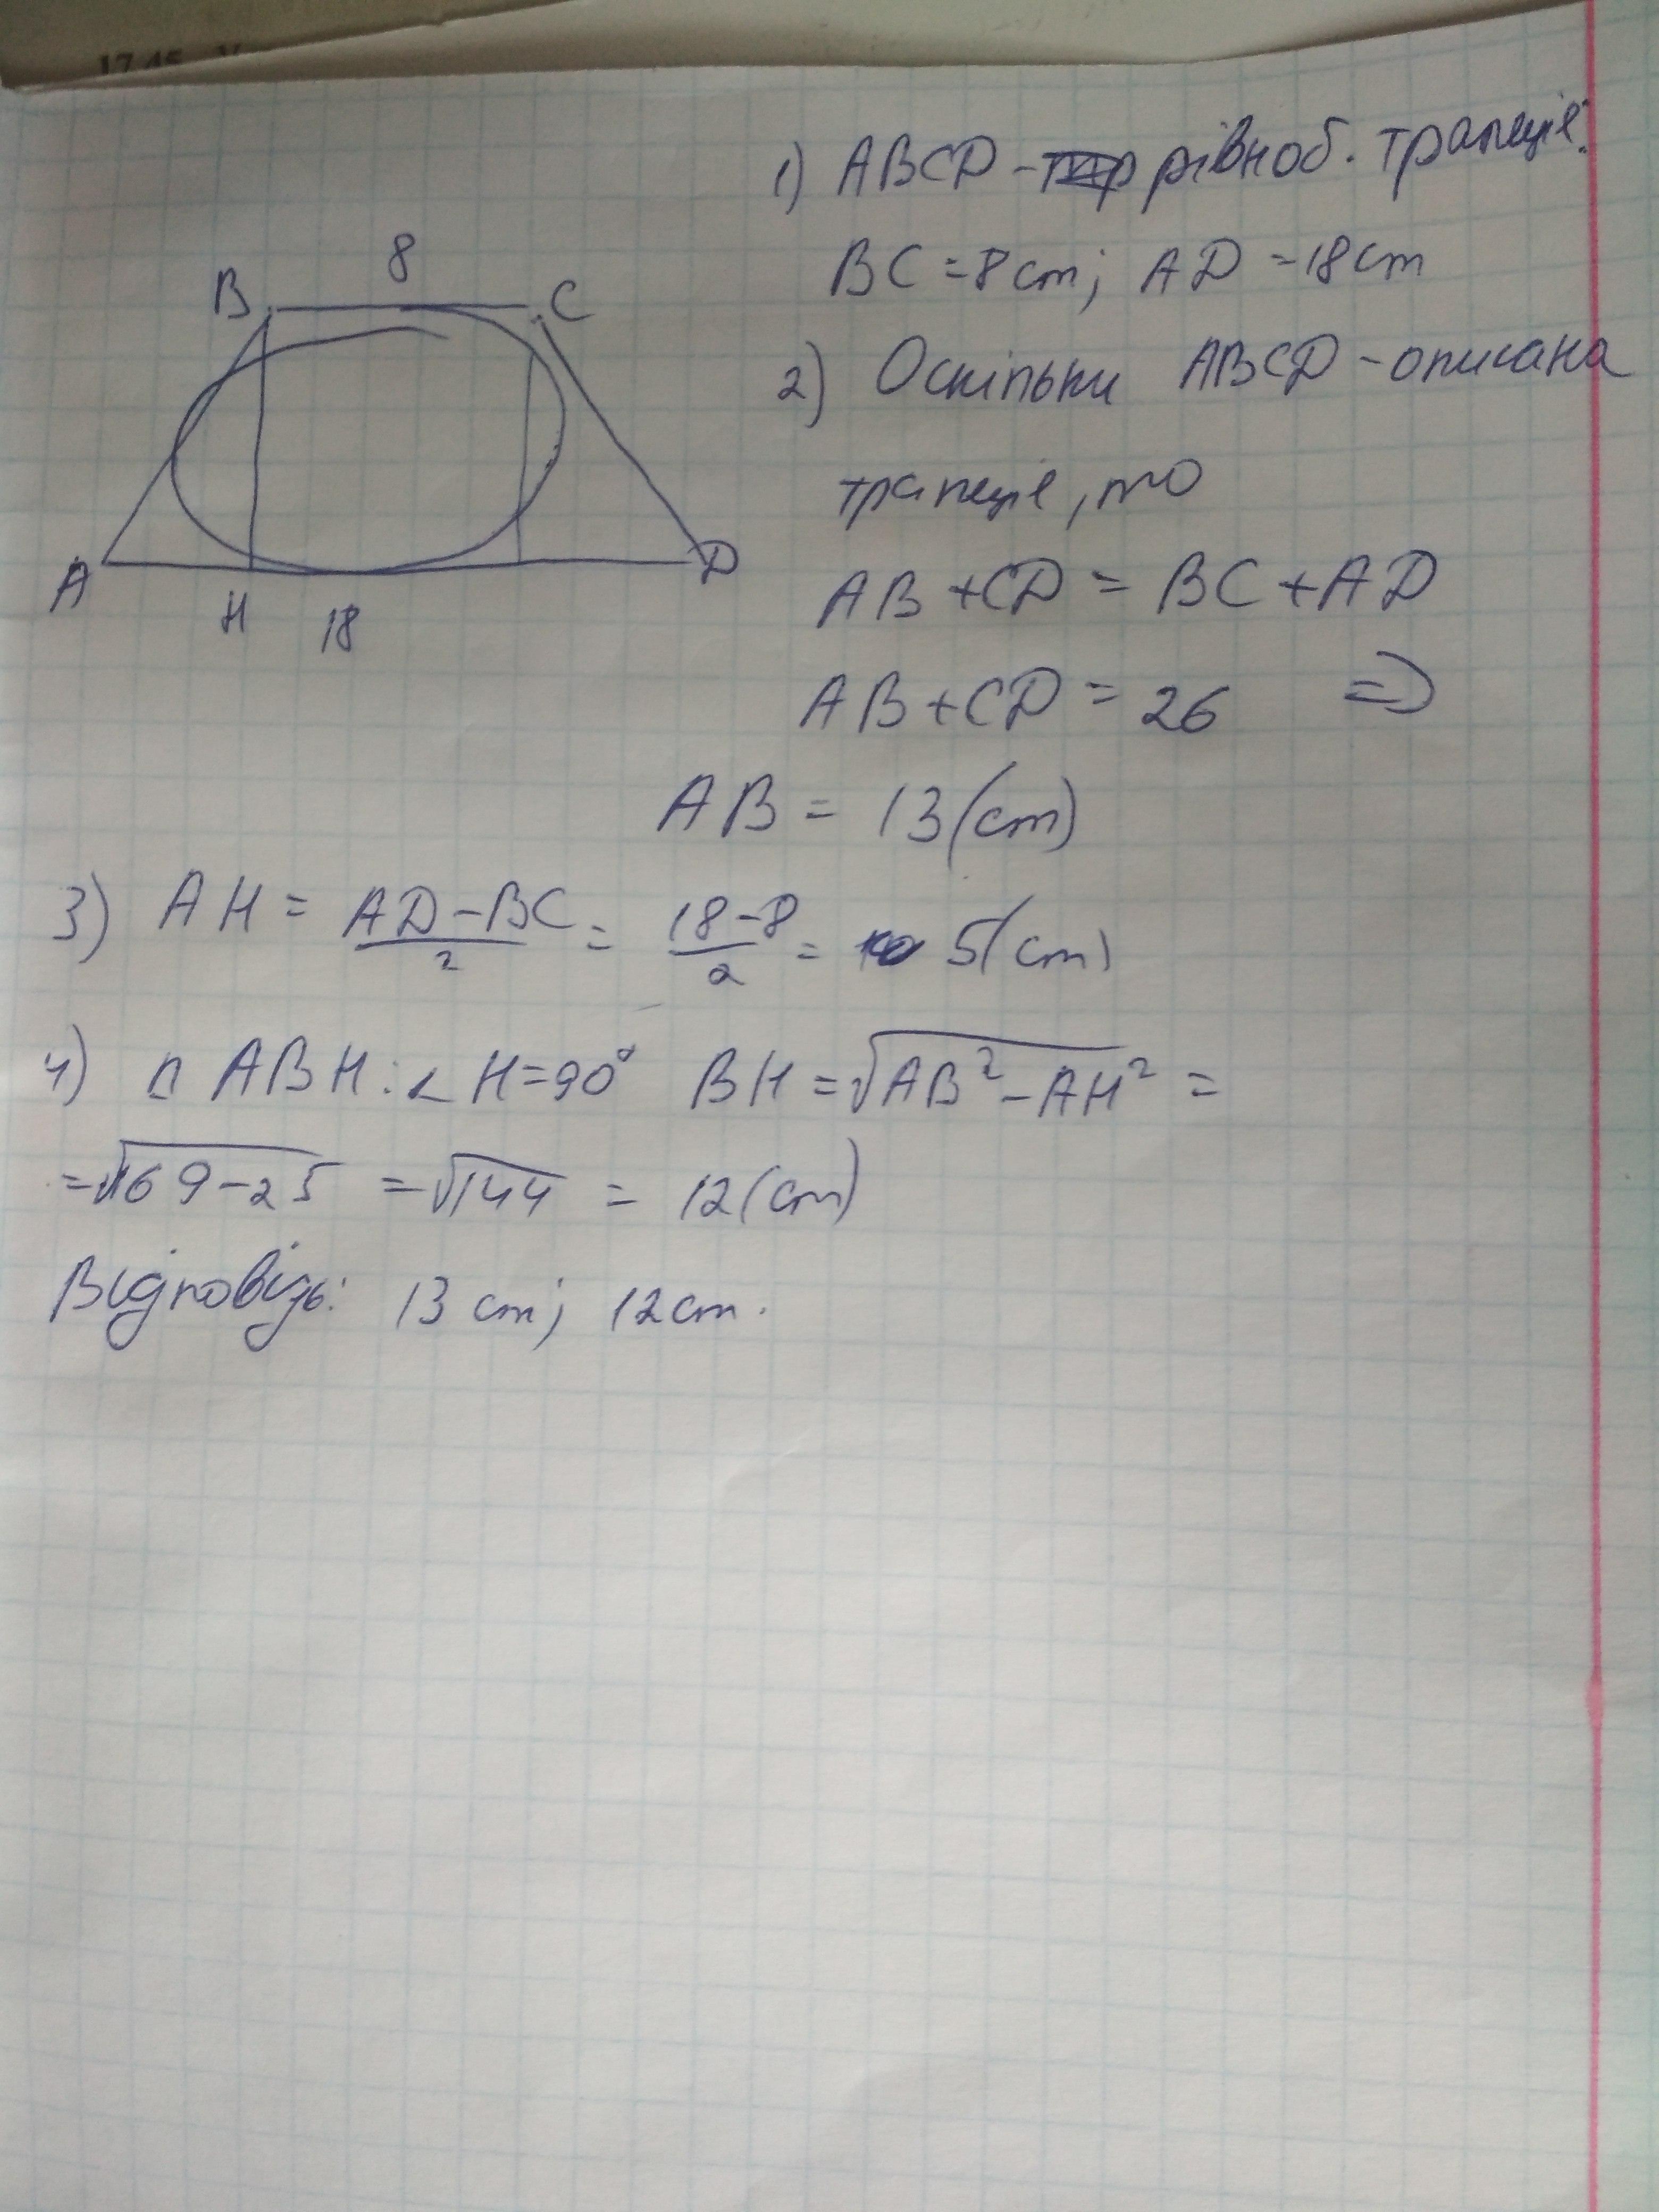 8
B C
A H 18 D
1) ABCD - рівноб. трапеція:
BC = 8 cm; AD = 18 cm
2) Оскільки ABCD - описана
трапеція, то
AB + CD = BC + AD
AB + CD = 26 =>
AB = 13 (cm)
3) AH = (AD - BC)/2 = (18 - 8)/2 = 5 (cm)
4) △ ABH: ∠ H = 90° BH = √(AB² - AH²) =
= √(169 - 25) = √144 = 12 (cm)
Відповідь: 13 cm; 12 cm.